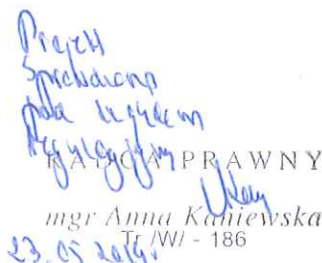 Projekt
Sprawdzono
pod względem
Regulacyjnym
RADCA PRAWNY
mgr Anna Kaniewska
Tr /W/ - 186
23.05.2019r